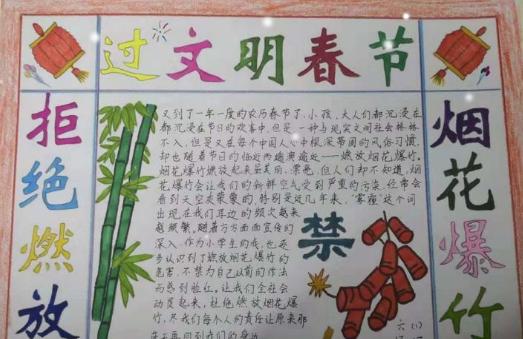 过文明春节
拒绝燃放
烟花爆竹
又到了一年一度的农历春节了,小孩、大人们都沉浸在
都沉浸在节日的欢喜中,但是一种与现实文明社会格格
不入,但是又在每个中国人心中根深蒂固的风俗习惯,
却也随着节日的临近而越演越近——燃放烟花,爆竹。
烟花爆竹燃放起来虽美丽、漂亮,但人们却不知道,烟
花爆竹会让我们的新鲜空气受到严重的污染,经常会
看到天空灰蒙蒙的,特别是近几年来,"雾霾"这个词
出现在我们耳边的频次越来
越频繁,随着方方面面宣传的
深入,作为小学生的我,也逐
步认识到了燃放烟花爆竹的
危害,不禁为自己以前的作法
而感到脸红。让我们全社会
动员起来,杜绝燃放烟花爆
竹,尽我们每个人的责任让原来那
禁
六(1)